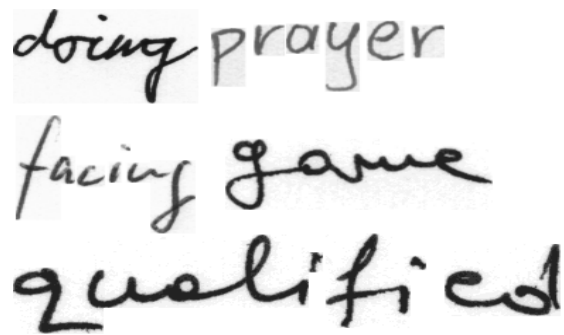 doing prayer
facing game
qualified